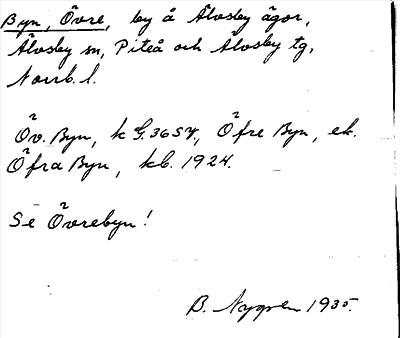 Byn, Övre, by å Älvsby ägor,
Älvsby sn, Piteå och Älvsby tg,
Norrb. l.
Öv. Byn, k G. 36 SV, Öfre Byn, ek.
Öfra Byn, kb. 1924.
Se Övrebyn!
B. Nygren 1935.